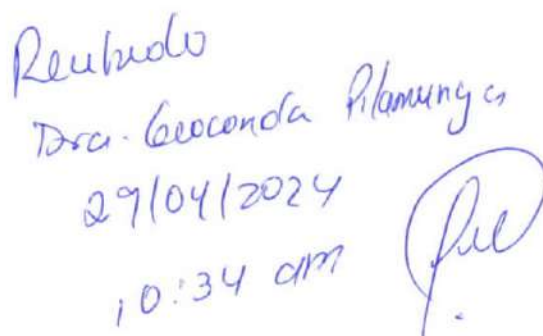 Recibido
Dra. Geoconda Pilamunga
29/04/2024
10:34 am